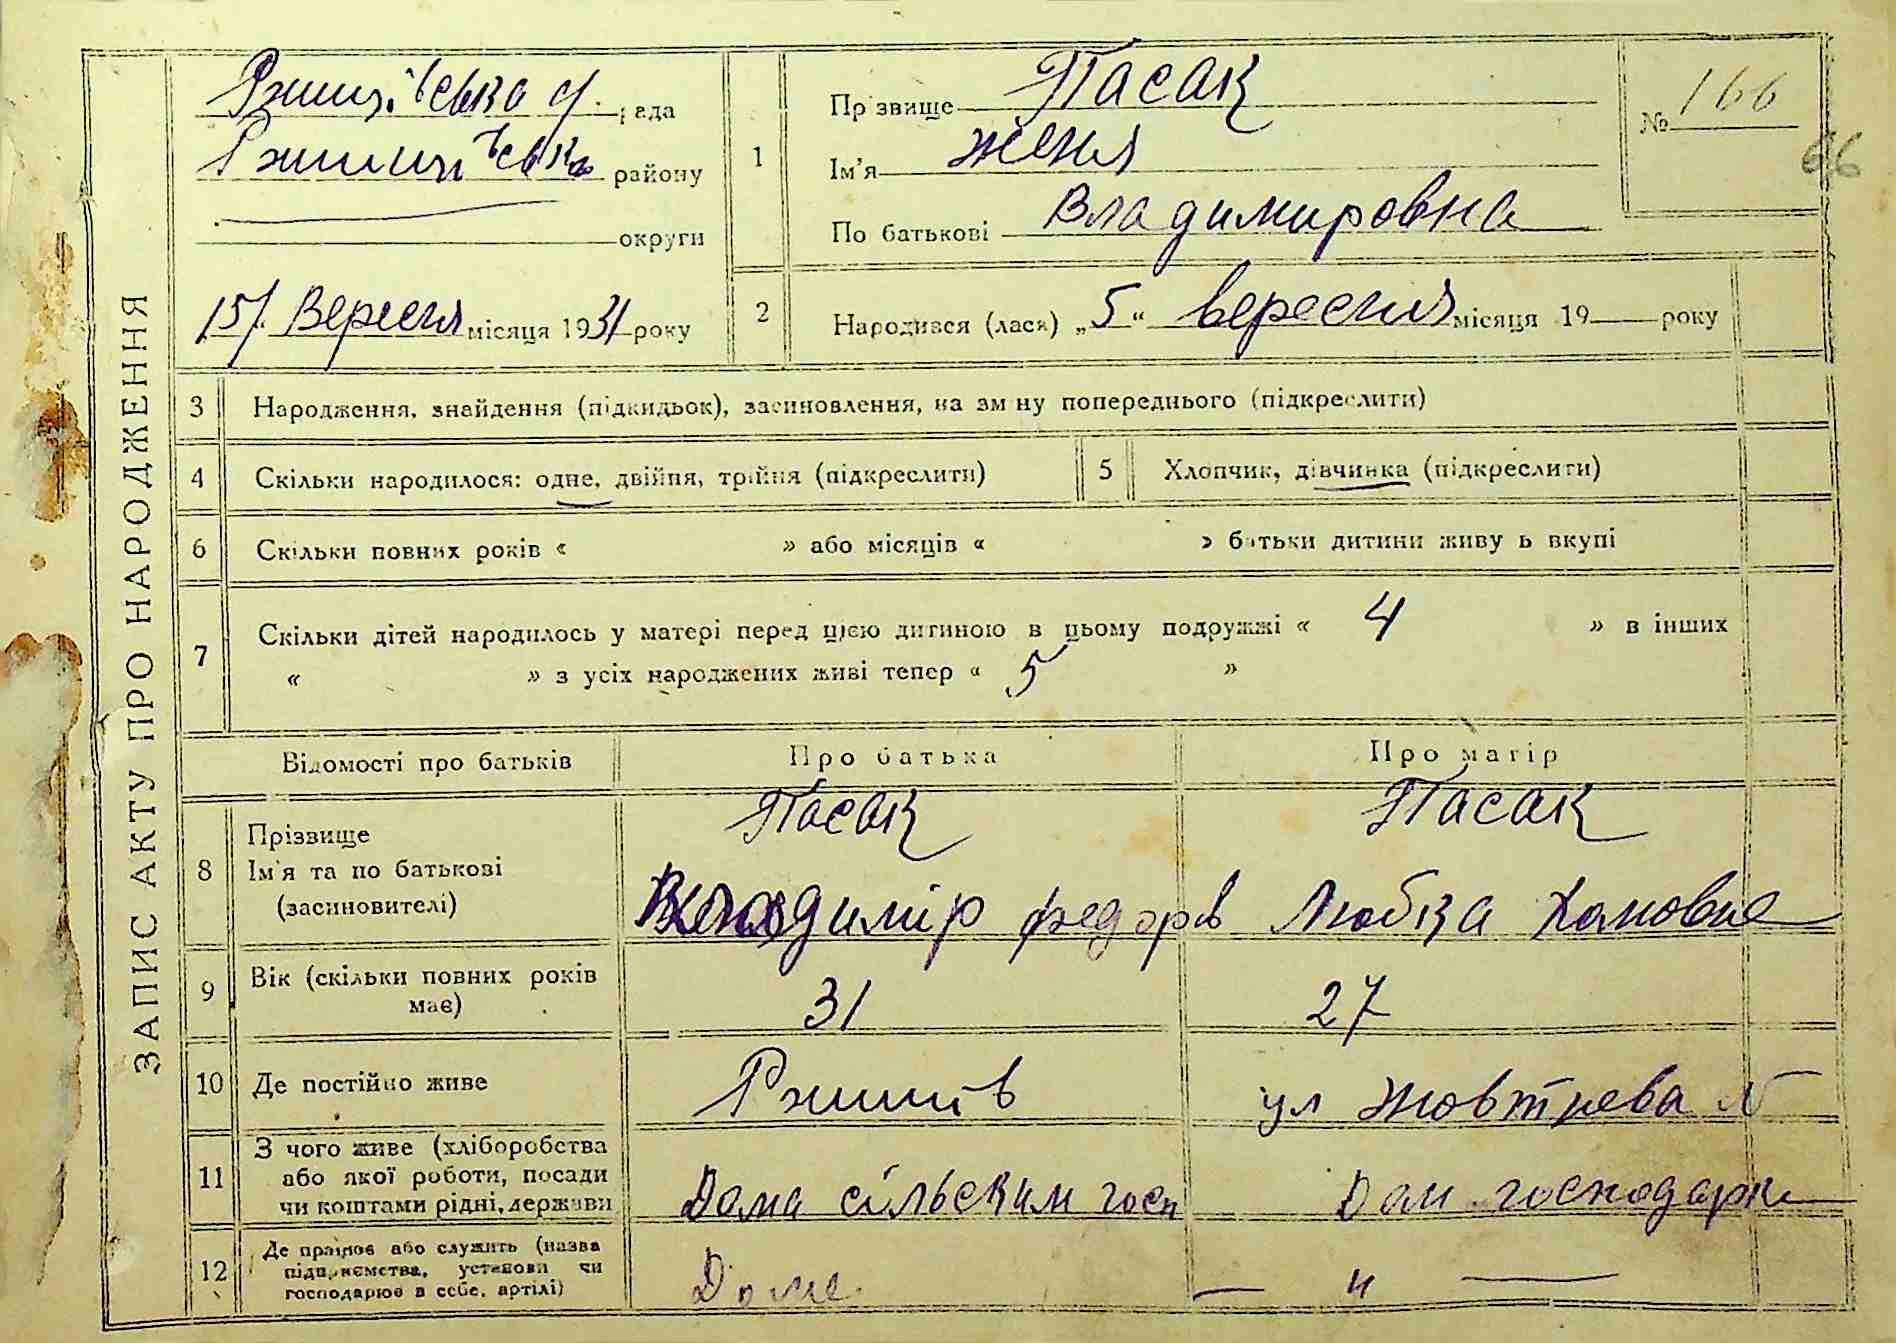 ЗАПИС АКТУ ПРО НАРОДЖЕННЯ
Ржищівсько с/. рада
Ржищівсько району
округи
15/. Вересня місяця 1931 року
1
Прізвище Пасак
Ім'я Женя
По батькові Владимировна
№ 166
66
2 Народився (лася) „5“ вересния місяця 19 року
3 Народження, знайдення (підкидьок), засиновлення, на зміну попереднього (підкреслити)
4 Скільки народилося: одне, двійня, трійня (підкреслити)
5 Хлопчик, дівчинка (підкреслити)
6 Скільки повних років « » або місяців « » батьки дитини живуть вкупі
7 Скільки дітей народилось у матері перед цією дитиною в цьому подружжі « 4 » в інших
« » з усіх народжених живі тепер « 5 »
Відомості про батьків
Про батька
Про матір
8 Прізвище
Ім'я та по батькові
(засиновителі)
Пасак
Владимір федорів
Пасак
Любка Хомовна
9 Вік (скільки повних років
має)
31
27
10 Де постійно живе
Ржищів
ул Жовтнева №
11 З чого живе (хліборобства
або якої роботи, посади
чи коштами рідні, держави
Дома сільским госп
Дом. господарка
12 Де працює або служить (назва
підприємства, установи чи
господарює в себе, артілі)
Дома
— „ —